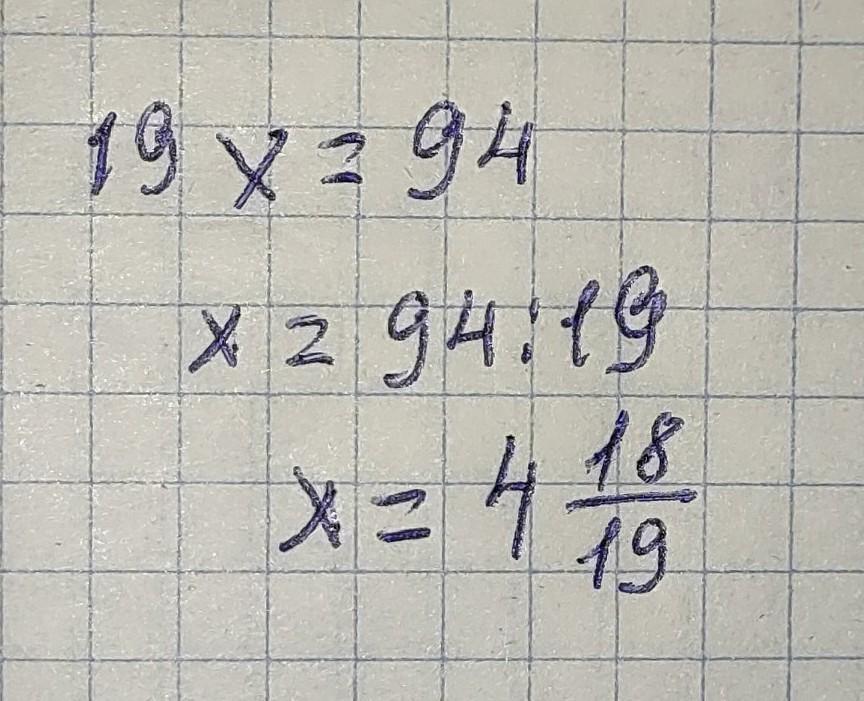 19 x = 94
x = 94:19
x = 4 18/19